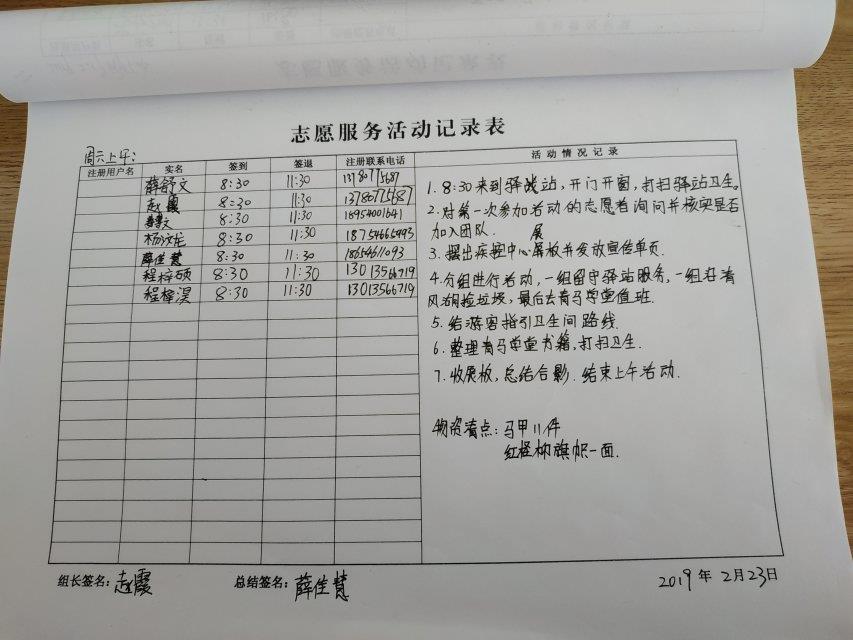 志愿服务活动记录表
周六上午:
注册用户名 实名 签到 签退 注册联系电话 活动情况记录
薛舒文 8:30 11:30 13780775687
赵霞 8:30 11:30 13780775687
8:30 11:30 18954001641
杨汶龙 8:30 11:30 18754665493
薛佳慧 8:30 11:30 18654611093
程梓硕 8:30 11:30 13013566719
程梓淏 8:30 11:30 13013566719
1. 8:30来到驿战站,开门开窗,打扫驿站卫生。
2. 对第一次参加活动的志愿者询问并核实是否
加入团队.
3. 摆出疾控中心展板并发放宣传单页.
4. 分组进行活动,一组留守驿站服务,一组在清
风湖捡垃圾,最后去青马学堂值班.
5. 给游客指引卫生间路线.
6. 整理青马学堂书籍,打扫卫生.
7. 收展板,总结合影.结束上午活动.
物资清点:马甲11件
红柽柳旗帜一面.
组长签名:赵霞 总结签名:薛佳慧 2019年2月23日